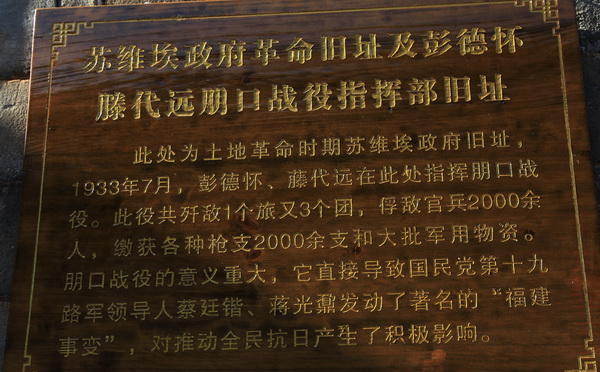 苏维埃政府革命旧址及彭德怀
藤代远朋口战役指挥部旧址
此处为土地革命时期苏维埃政府旧址，
1933年7月，彭德怀、藤代远在此处指挥朋口战
役。此役共歼敌1个旅又3个团，俘敌官兵2000余
人，缴获各种枪支2000余支和大批军用物资。
朋口战役的意义重大，它直接导致国民党第十九
路军领导人蔡廷锴、蒋光鼐发动了著名的“福建
事变”，对推动全民抗日产生了积极影响。